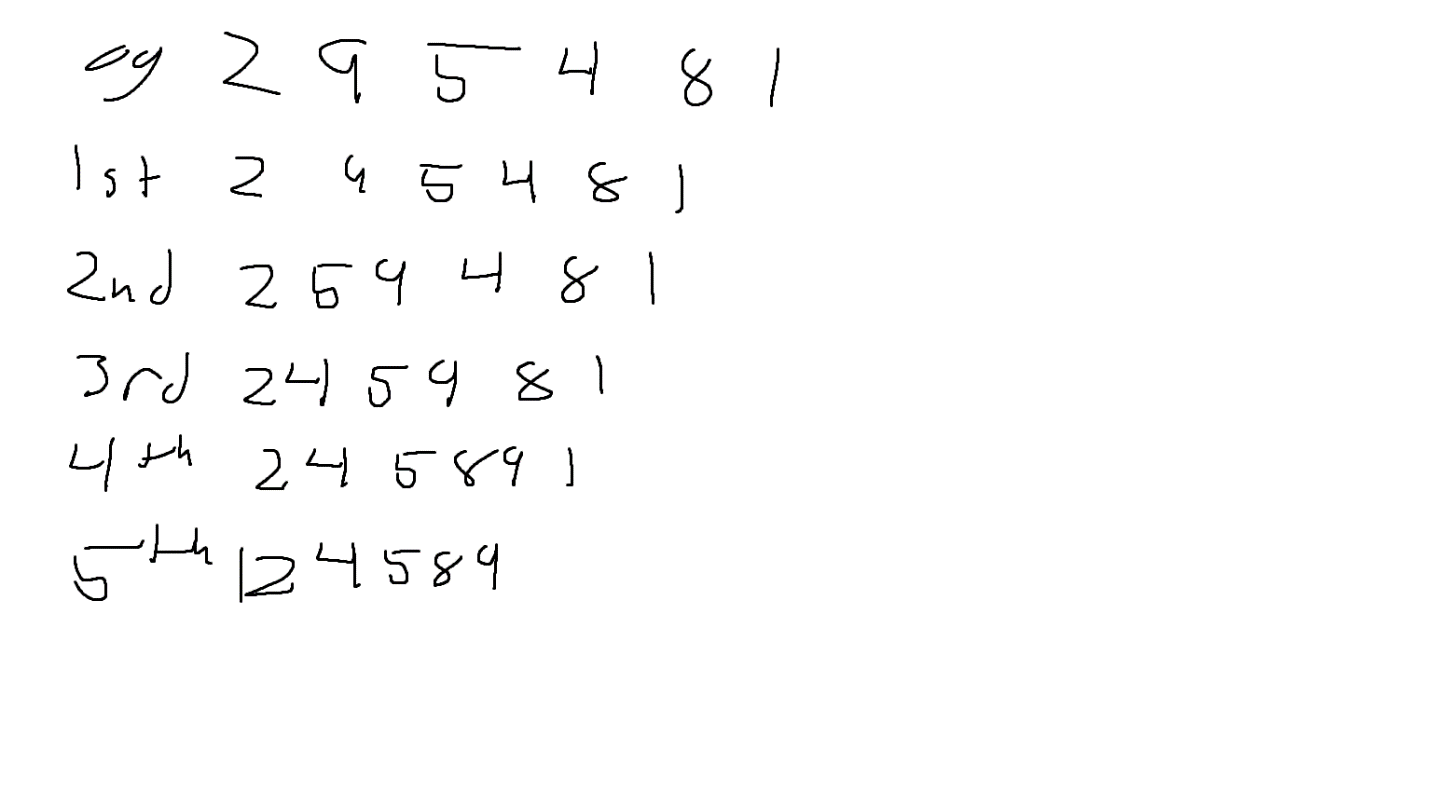 og 2 9 5 4 8 1
1st 2 9 5 4 8 1
2nd 2 5 9 4 8 1
3rd 2 4 5 9 8 1
4th 2 4 5 8 9 1
5th 1 2 4 5 8 9